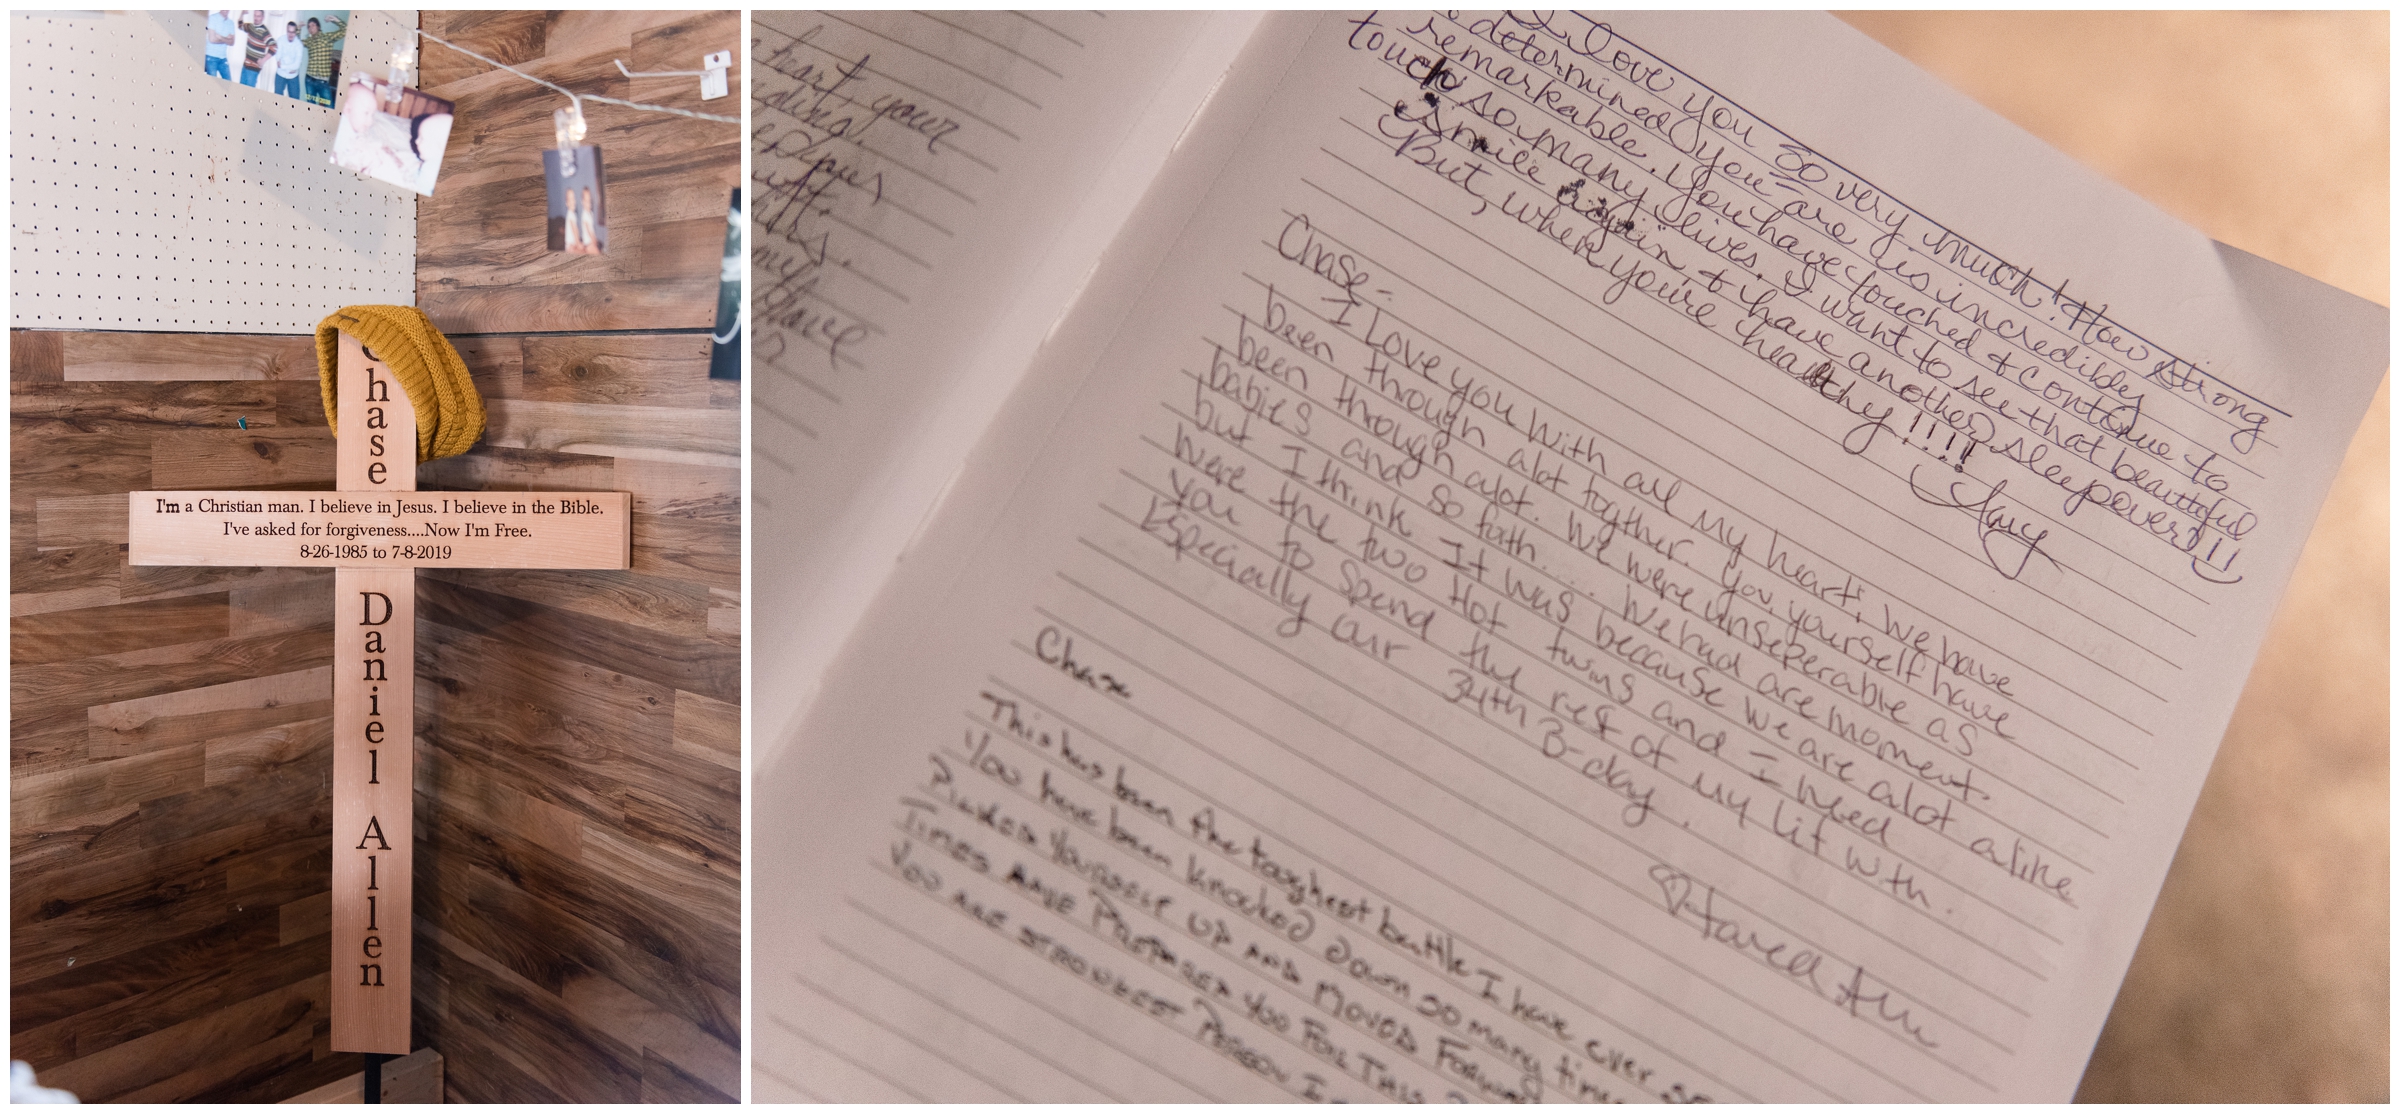 Chase
I'm a Christian man. I believe in Jesus. I believe in the Bible.
I've asked for forgiveness....Now I'm Free.
8-26-1985 to 7-8-2019
Daniel Allen
heart your
I love you so very much! How strong
& determined you are is incredibly
remarkable. You have touched & continue to
touch so many lives. I want to see that beautiful
smile again & have another sleepover!!
But, when you're healthy!!!!
Chase-
I Love you with all my heart! We have
been through alot togther. You, yourself have
been through alot. We were unseperable as
babies and so forth... We had are moment.
but I think It was because we are alot alike
were the two Hot twins and I need
you to spend the rest of my lif with.
Especially our 34th B-day.
Chase
This has been the toughest battle I have ever
You have been knocked down so many times
Picked yourself up and moved Forward
Times have Prepared you For This
You are strongest Person I